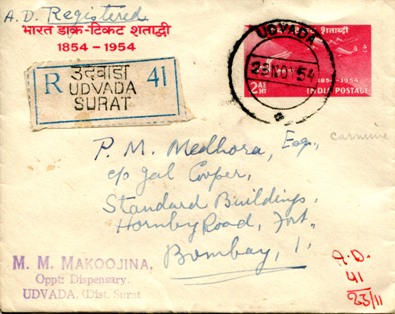 A.D. Registered
भारत डाक-टिकट शताब्दी
1854-1954
R
उदवाडा
UDVADA
SURAT
41
UDVADA
23 NOV 54
शताब्दी
1854-1954
2 AS
INDIA POSTAGE
carmine
P. M. Medhora, Esq.,
c/o Jal Cooper,
Standard Buildings,
Hornby Road, Fort,
Bombay, 1.
M. M. MAKOOJINA,
Opp: Dispensary.
UDVADA, (Dist. Surat
A.D.
41
23/11